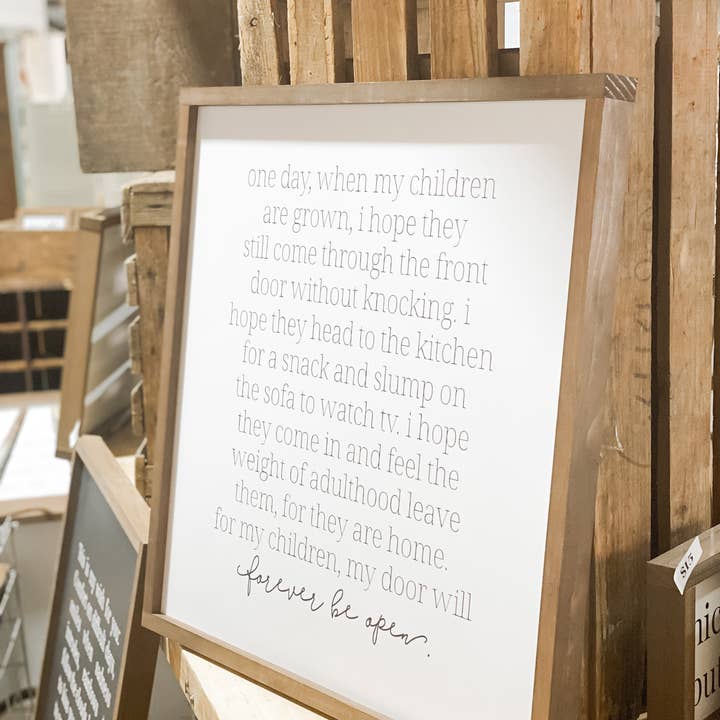 one day, when my children
are grown, i hope they
still come through the front
door without knocking. i
hope they head to the kitchen
for a snack and slump on
the sofa to watch tv. i hope
they come in and feel the
weight of adulthood leave
them, for they are home.
for my children, my door will
forever be open.
$15